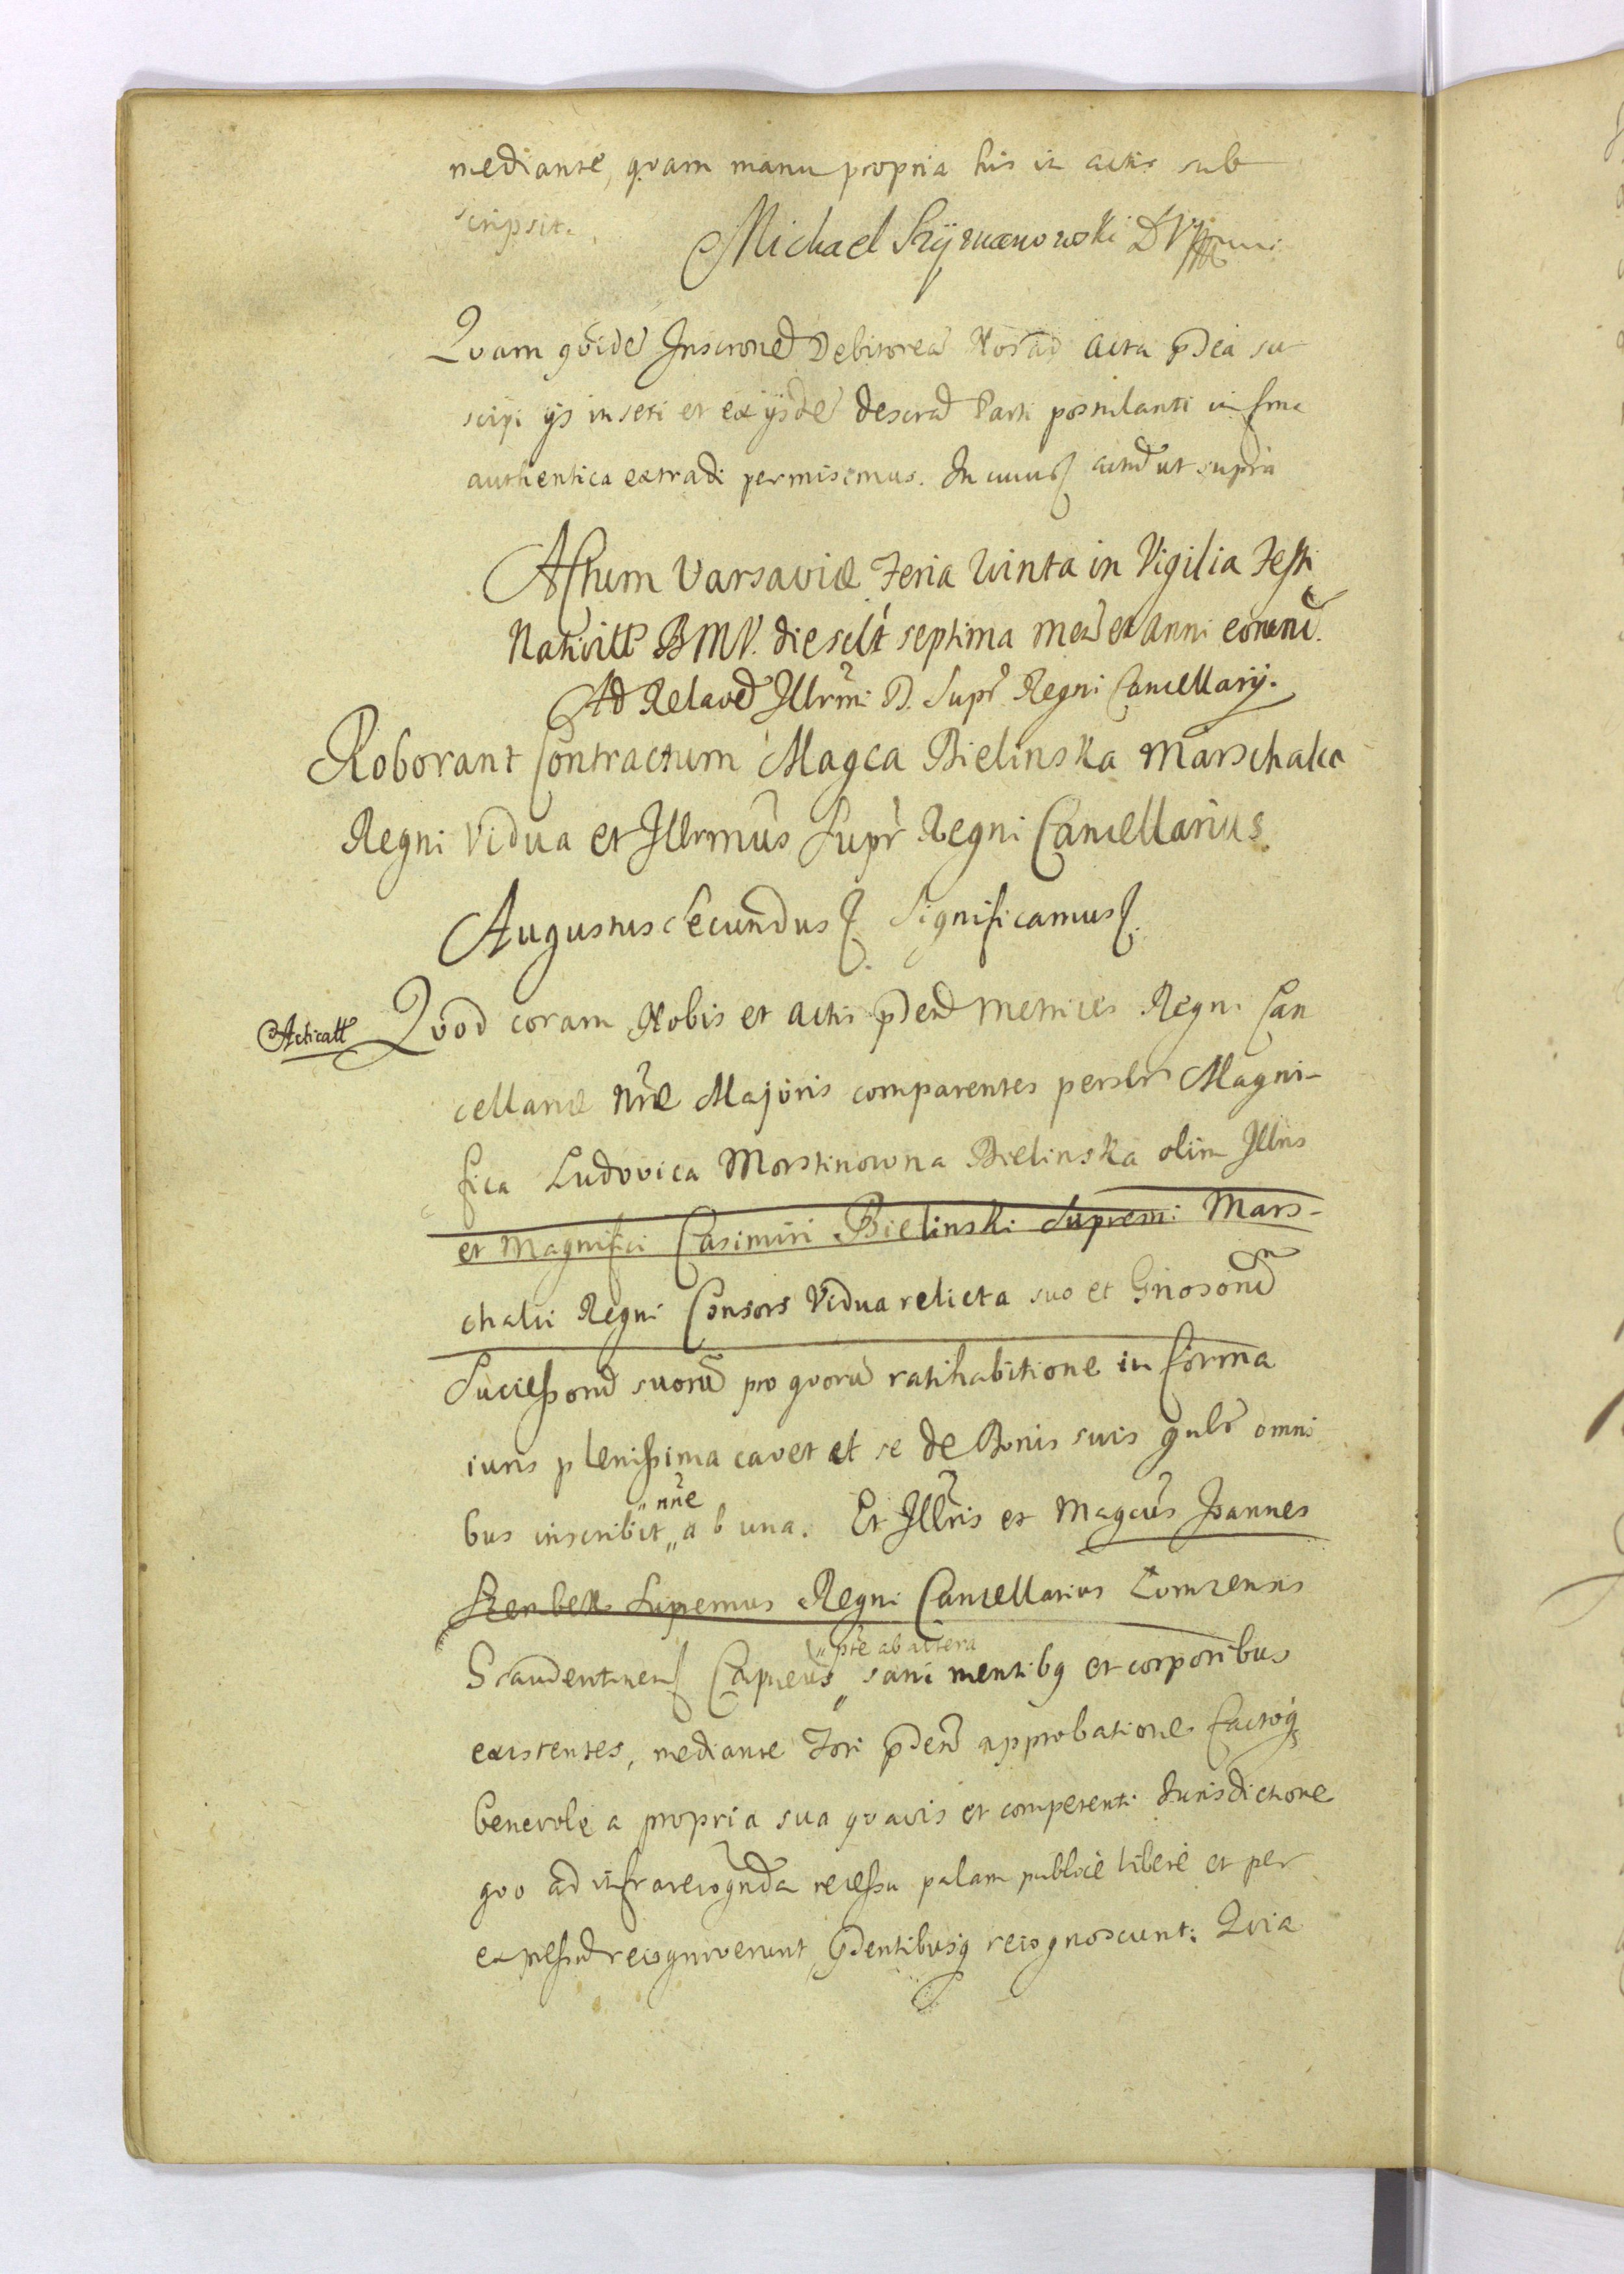 mediante, qvam manu propria his in actis sub
scripsit.
Michael Szÿmanowski
Qvam qvidē Inscronēd Debitoreā Nos ad acta pdca su
scipi ijs inseri et ex ijsdē descrād Parti postulanti in fma
authentica extradi permisimus. In cuius actūd ut supra
Actum Varsaviæ Feria Qvinta in Vigilia Festi
Nativitt BMV. die sclt septima mens et Anni eorund.
Ad Relaōēd Illrmi D. Supr Regni Cancellarij.
Roborant Contractum Magca Bielinska Marschalca
Regni Vidua et Illrmus Supr Regni Cancellarius.
Augustus Secundus Significamus
Acticatt
Qvod coram Nobis et actis pdend Metrices Regni Can
cellariæ nræ Majoris comparentes persltr Magni-
fica Ludovica Morstinowna Bielinska olim Illris
et Magnifici Casimiri Bielinski Supremi Mars-
chalci Regni Consors Vidua relicta suo et
Successorū suorū pro qvorū ratihabitione in forma
iuris plenissima cavet et se de Bonis suis gnlr omni
bus inscribit „ ab una. Et Illris et Magcus Joannes
„ nne
Szenbek Supremus Regni Cancellarius Łomzensis
„ pte ab altera
Graudentinens Capneus „ sani mentibq et corporibus
existentes, mediante Fori pdend approbatione factoq
benevole a propria sua qvavis et competenti Jurisdictione
qvo ad infrarecognda recessu palam publice libere et per
expressūd recognoverunt, pdentibusq recognoscunt: Qvia